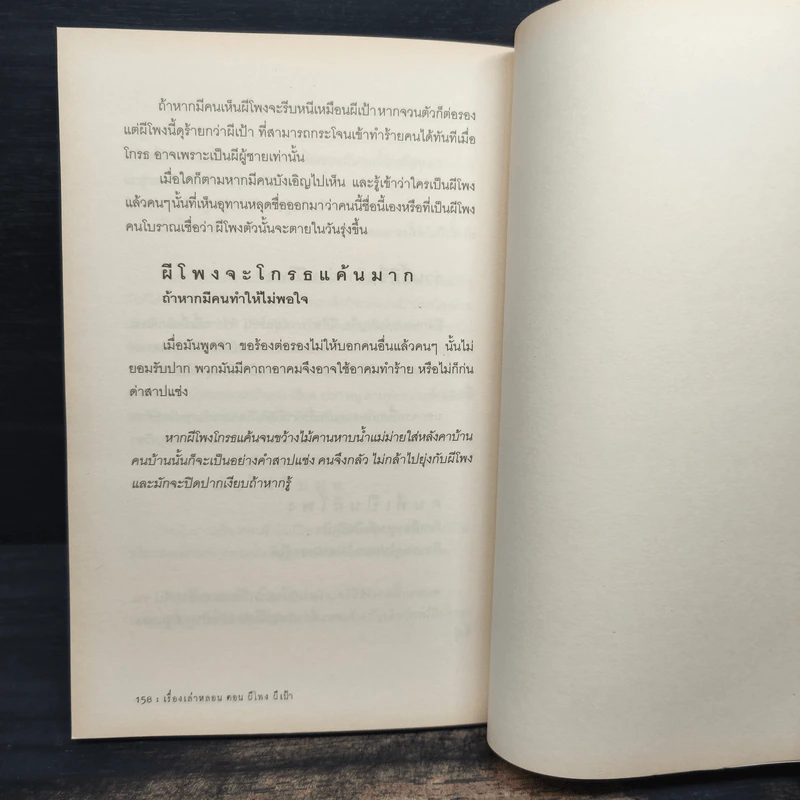 ถ้าหากมีคนเห็นผีโพงจะรีบหนีเหมือนผีเป้า หากจวนตัวก็ต่อรอง
แต่ผีโพงนี้ดุร้ายกว่าผีเป้า ที่สามารถกระโจนเข้าทำร้ายคนได้ทันทีเมื่อ
โกรธ อาจเพราะเป็นผีผู้ชายเท่านั้น
เมื่อใดก็ตามหากมีคนบังเอิญไปเห็น และรู้เข้าว่าใครเป็นผีโพง
แล้วคนๆนั้นที่เห็นอุทานหลุดชื่อออกมาว่าคนนี้ชื่อนี้เองหรือที่เป็นผีโพง
คนโบราณเชื่อว่า ผีโพงตัวนั้นจะตายในวันรุ่งขึ้น
ผีโพงจะโกรธแค้นมาก
ถ้าหากมีคนทำให้ไม่พอใจ
เมื่อมันพูดจา ขอร้องต่อรองไม่ให้บอกคนอื่นแล้วคนๆ นั้นไม่
ยอมรับปาก พวกมันมีคาถาอาคมจึงอาจใช้อาคมทำร้าย หรือไม่ก็ก่น
ด่าสาปแช่ง
หากผีโพงโกรธแค้นจนขว้างไม้คานหาบน้ำแม่ม่ายใส่หลังคาบ้าน
คนบ้านนั้นก็จะเป็นอย่างคำสาปแช่ง คนจึงกลัว ไม่กล้าไปยุ่งกับผีโพง
และมักจะปิดปากเงียบถ้าหากรู้
158 : เรื่องเล่าหลอน ตอน ผีโพง ผีเป้า